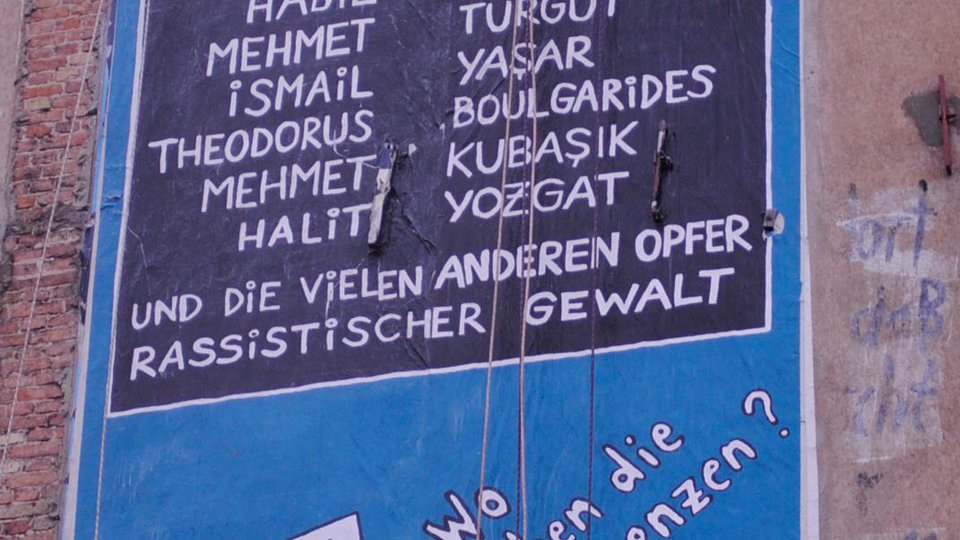 HABIL TURGUT
MEHMET YAŞAR
iSMAiL BOULGARiDES
THEODORUS KUBAŞiK
MEHMET YOZGAT
HALiT
UND DiE ViELEN ANDEREN OPFER
RASSiSTiSCHER GEWALT
Wo
en die
enzen?